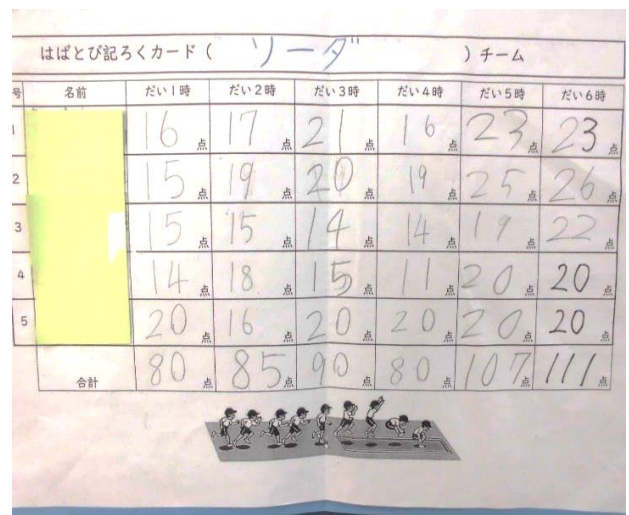 はばとび記ろくカード（ ソーダ ）チーム
号 名前 だい1時 だい2時 だい3時 だい4時 だい5時 だい6時
1 16点 17点 21点 16点 23点 23点
2 15点 19点 20点 19点 25点 26点
3 15点 15点 14点 14点 19点 22点
4 14点 18点 15点 11点 20点 20点
5 20点 16点 20点 20点 20点 20点
合計 80点 85点 90点 80点 107点 111点